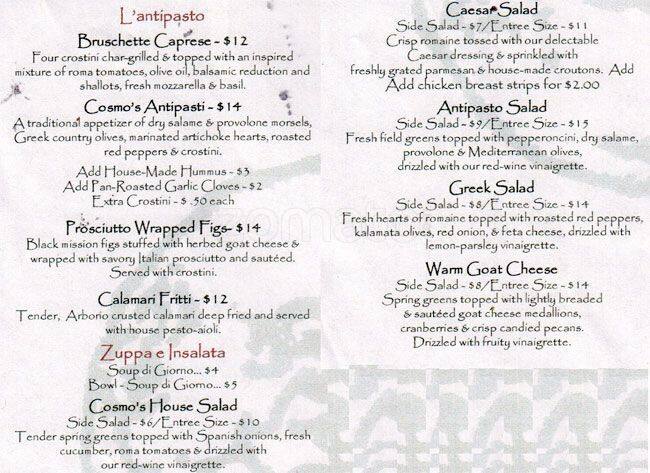 L'antipasto
Bruschette Caprese - $12
Four crostini char-grilled & topped with an inspired
mixture of roma tomatoes, olive oil, balsamic reduction and
shallots, fresh mozzarella & basil.
Cosmo's Antipasti - $14
A traditional appetizer of dry salame & provolone morsels,
Greek country olives, marinated artichoke hearts, roasted
red peppers & crostini.
Add House-Made Hummus - $3
Add Pan-Roasted Garlic Cloves - $2
Extra Crostini - $ .50 each
Prosciutto Wrapped Figs- $14
Black mission figs stuffed with herbed goat cheese &
wrapped with savory Italian prosciutto and sautéed.
Served with crostini.
Calamari Fritti - $12
Tender, Arborio crusted calamari deep fried and served
with house pesto-aioli.
Zuppa e Insalata
Soup di Giorno... $4
Bowl - Soup di Giorno... $5
Cosmo's House Salad
Side Salad - $6/Entree Size - $10
Tender spring greens topped with Spanish onions, fresh
cucumber, roma tomatoes & drizzled with
our red-wine vinaigrette.
Caesar Salad
Side Salad - $7/Entree Size - $11
Crisp romaine tossed with our delectable
Caesar dressing & sprinkled with
freshly grated parmesan & house-made croutons. Add
Add chicken breast strips for $2.00
Antipasto Salad
Side Salad - $9/Entree Size - $15
Fresh field greens topped with pepperoncini, dry salame,
provolone & Mediterranean olives,
drizzled with our red-wine vinaigrette.
Greek Salad
Side Salad - $8/Entree Size - $14
Fresh hearts of romaine topped with roasted red peppers,
kalamata olives, red onion, & feta cheese, drizzled with
lemon-parsley vinaigrette.
Warm Goat Cheese
Side Salad - $8/Entree Size - $14
Spring greens topped with lightly breaded
& sautéed goat cheese medallions,
cranberries & crisp candied pecans.
Drizzled with fruity vinaigrette.